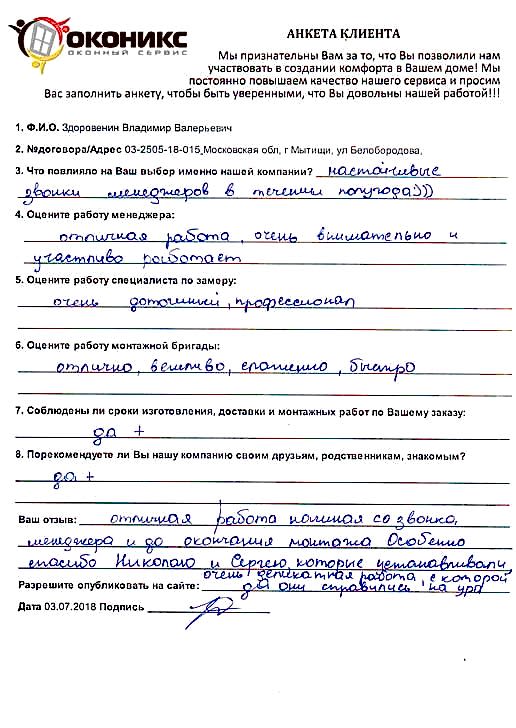 ОКОНИКС
ОКОННЫЙ СЕРВИС
АНКЕТА КЛИЕНТА
Мы признательны Вам за то, что Вы позволили нам
участвовать в создании комфорта в Вашем доме! Мы
постоянно повышаем качество нашего сервиса и просим
Вас заполнить анкету, чтобы быть уверенными, что Вы довольны нашей работой!!!
1. Ф.И.О. Здоровенин Владимир Валерьевич
2. №договора/Адрес 03-2505-18-015 Московская обл, г Мытищи, ул Белобородова,
3. Что повлияло на Ваш выбор именно нашей компании? настойчивые
звонки менеджеров в течении полугода)))
4. Оцените работу менеджера:
отличная работа, очень внимательно и
участливо работает
5. Оцените работу специалиста по замеру:
очень дотошный, профессионал
6. Оцените работу монтажной бригады:
отлично, вежливо, слаженно, быстро
7. Соблюдены ли сроки изготовления, доставки и монтажных работ по Вашему заказу:
да +
8. Порекомендуете ли Вы нашу компанию своим друзьям, родственникам, знакомым?
да +
Ваш отзыв: отличная работа начиная со звонка,
менеджера и до окончания монтажа Особенно
спасибо Николаю и Сергею, которые устанавливали
очень деликатная работа, с которой
Разрешите опубликовать на сайте: да они справились на ура
Дата 03.07.2018 Подпись